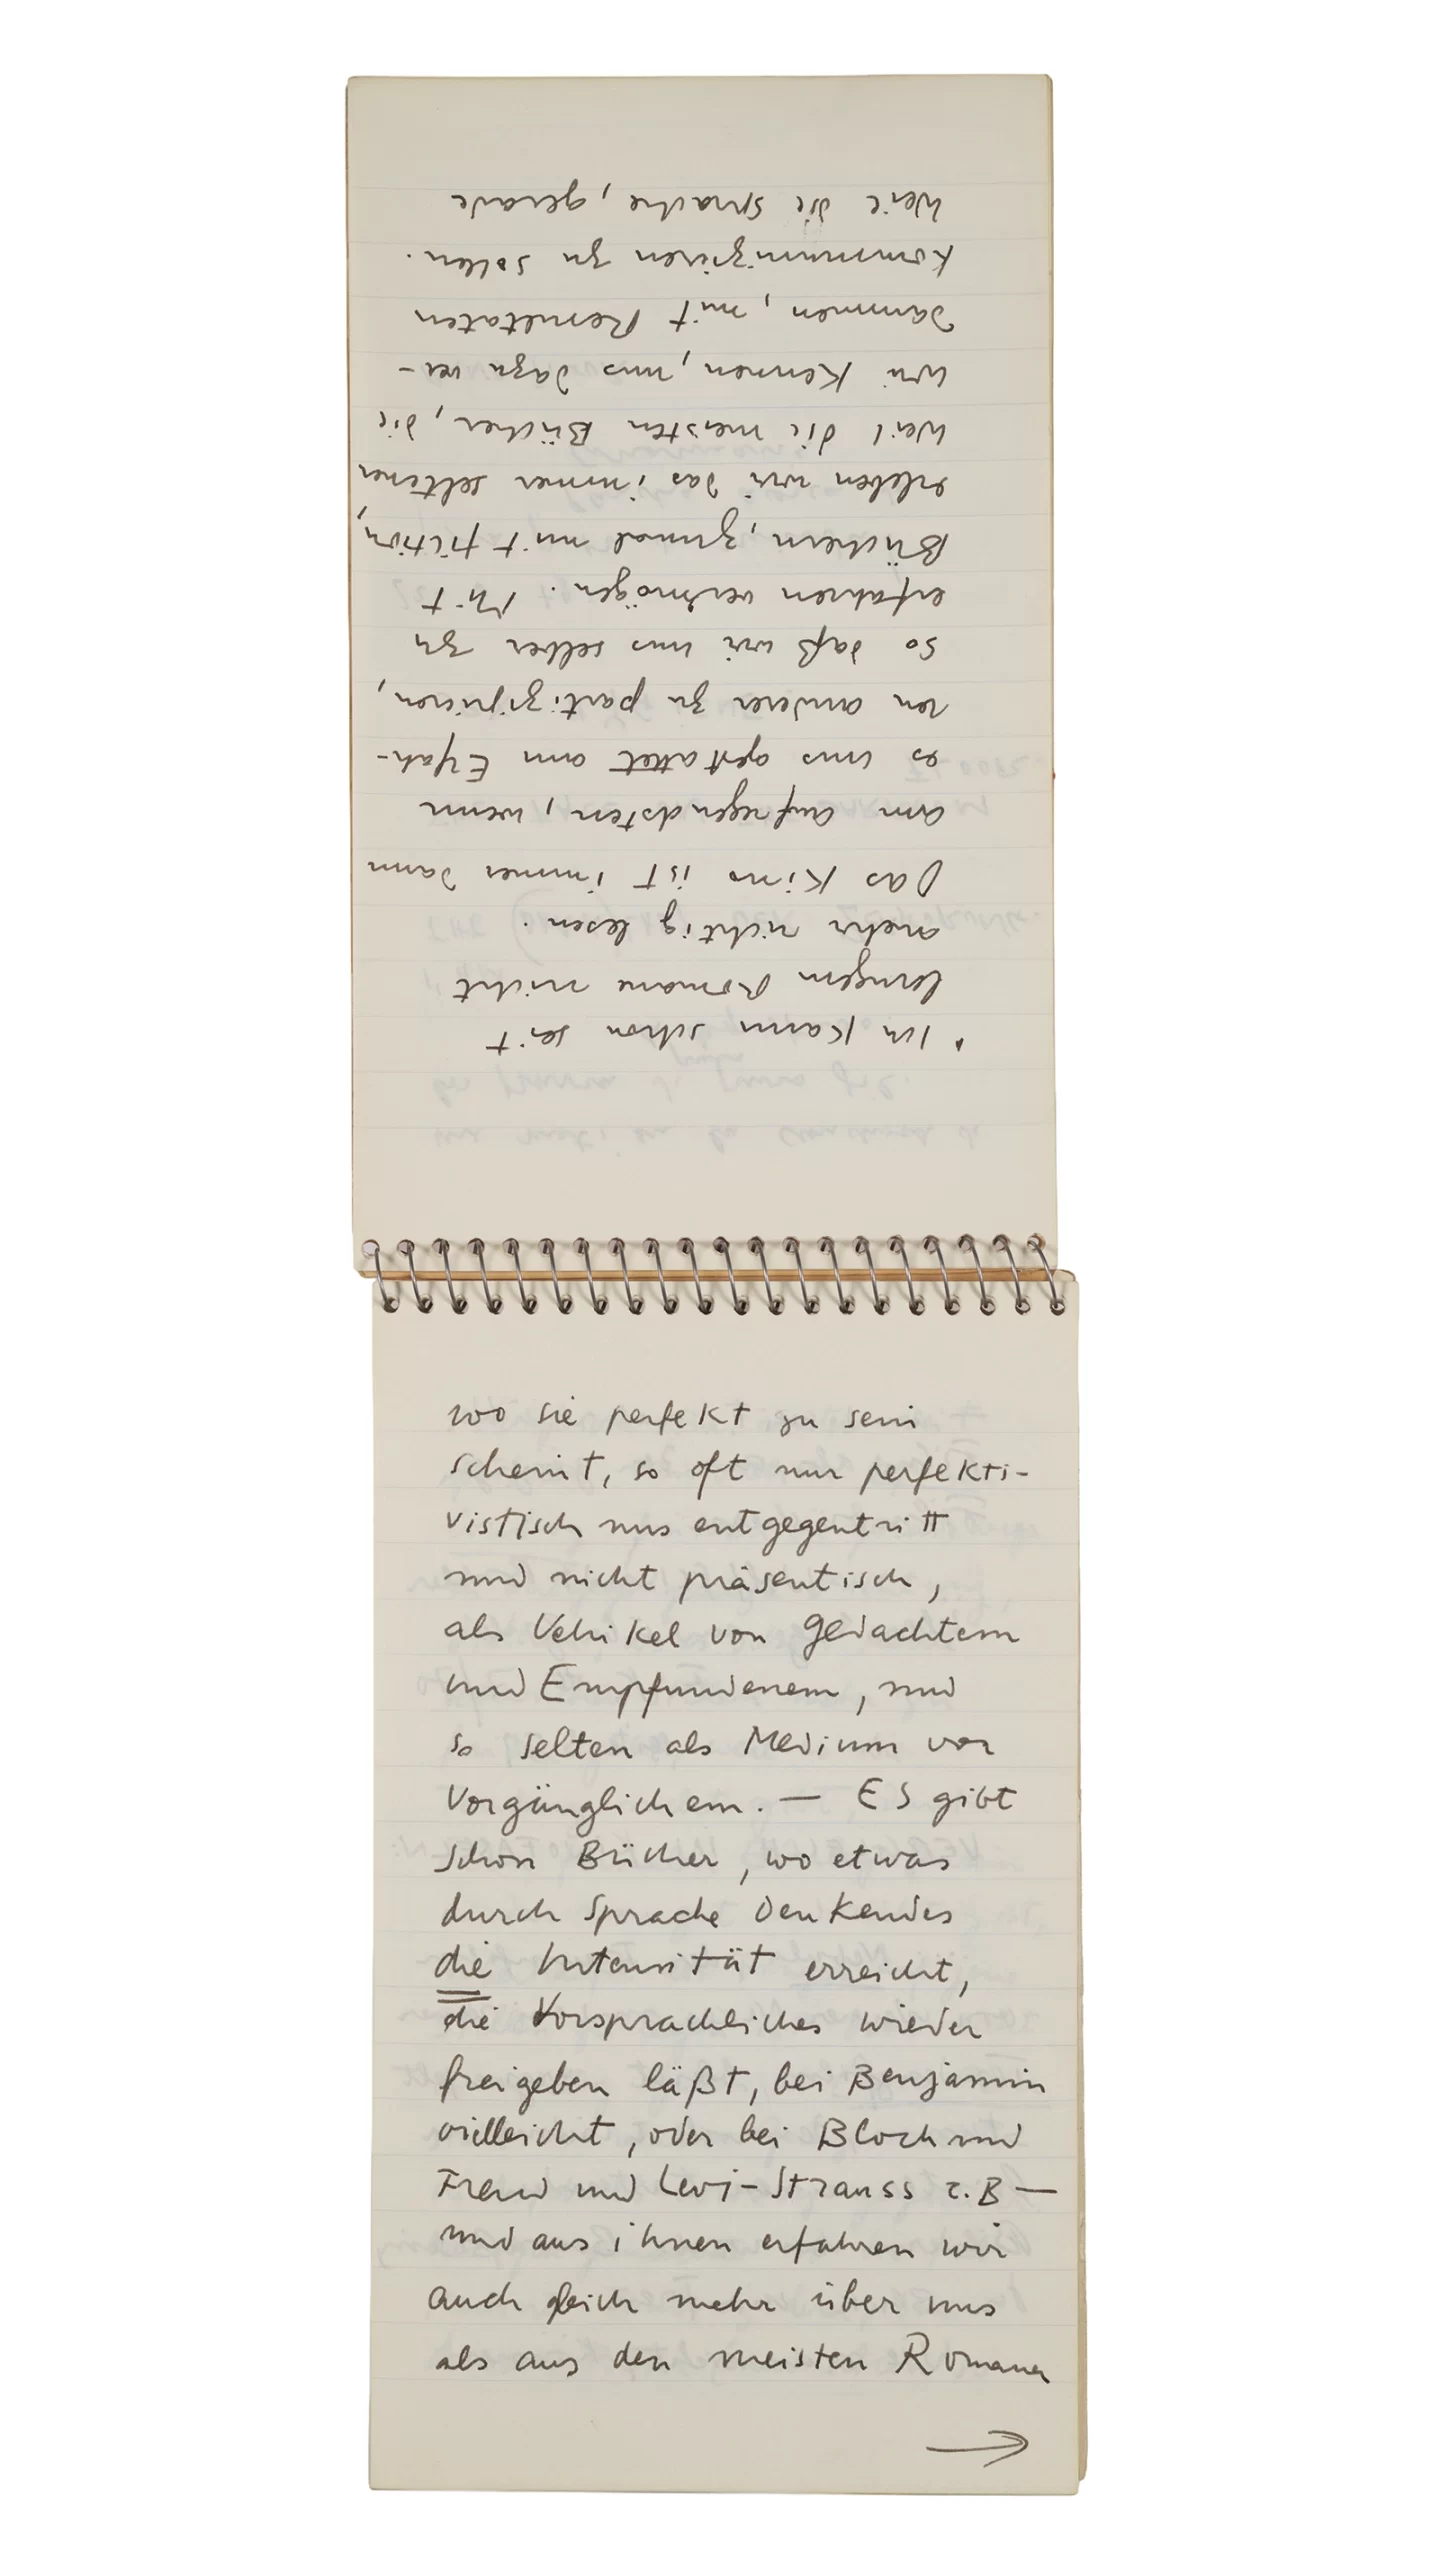 • Ich kann schon seit
langem Romane nicht
mehr richtig lesen.
Das Kino ist immer dann
am aufregendsten, wenn
es uns gestattet am Erfah-
ren anderer zu partizipieren,
so daß wir uns selber zu
erfahren vermögen. Mit
Büchern, zumal mit fiction,
erleben wir das immer seltener
weil die meisten Bücher, die
wir kennen, uns dazu ver-
dammen, mit Resultaten
kommunizieren zu sollen.
Weil die Sprache, gerade
wo sie perfekt zu sein
scheint, so oft nur perfekti-
vistisch uns entgegentritt
und nicht präsentisch,
als Vehikel von Gedachtem
und Empfundenem, und
so selten als Medium von
Vorgänglichem. — ES gibt
schon Bücher, wo etwas
durch Sprache Denkendes
die Intensität erreicht,
die Vorsprachliches wieder
freigeben läßt, bei Benjamin
vielleicht, oder bei Bloch und
Freud und Levi-Strauss z.B —
und aus ihnen erfahren wir
auch gleich mehr über uns
als aus den meisten Romanen
→